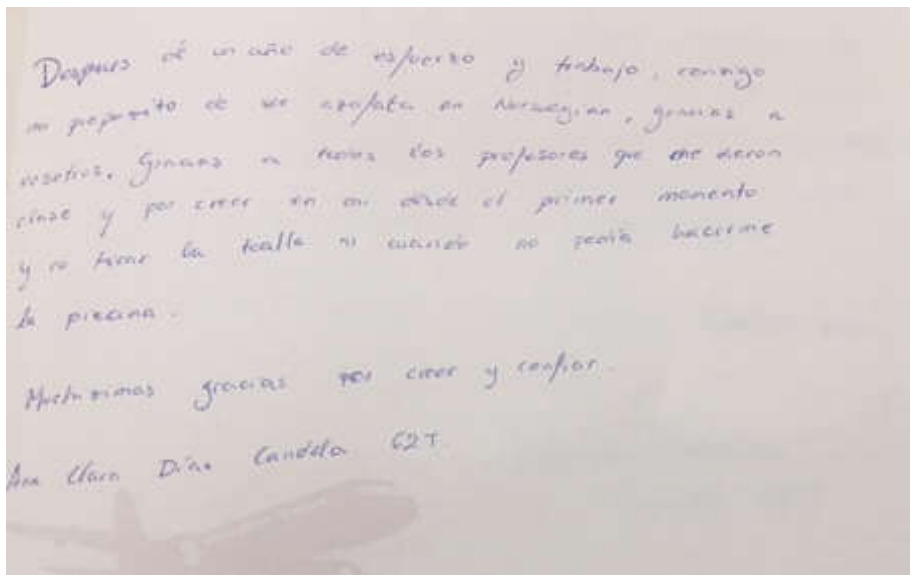 Despues de un año de esfuerzo y trabajo, consigo
mi proposito de ser azafata en Norwegian, gracias a
vosotros. Gracias a todos los profesores que me dieron
clase y por creer en mi desde el primer momento
y no tirar la toalla ni cuando no podia hacerme
la piscina.
Muchisimas gracias por creer y confiar.
Ana Clara Díaz Candela 62T